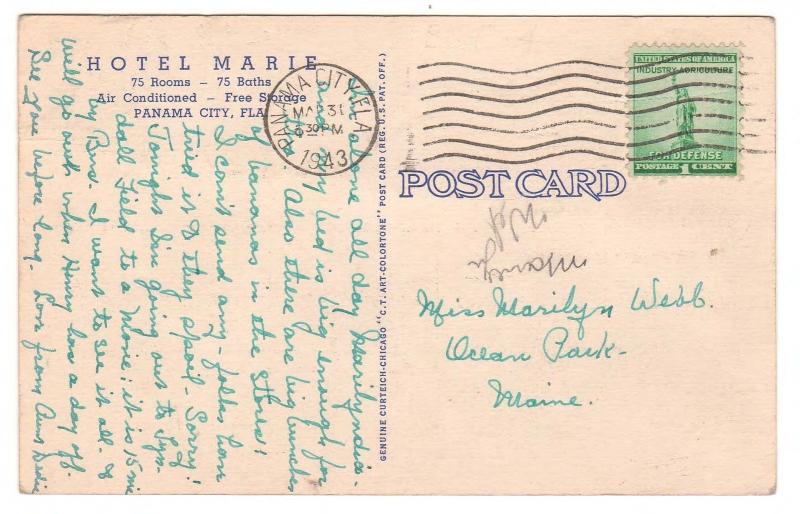 HOTEL MARIE
75 Rooms – 75 Baths
Air Conditioned – Free Storage
PANAMA CITY, FLA
PANAMA CITY, FLA.
MAR 31
6 30 PM
1943
UNITED STATES OF AMERICA
INDUSTRY·AGRICULTURE
FOR DEFENSE
POSTAGE 1 CENT
POST CARD
GENUINE CURTEICH-CHICAGO "C.T. ART-COLORTONE" POST CARD (REG. U.S. PAT. OFF.)
alone all day Marilyn dia-
bed is big enough for
Also there are big bunches
of bananas in the stores!
I can't send any - folks have
tried it & they spoil - Sorry!
Tonight I'm going out to Tyn-
dall Field to a Movie; it is 15 mi
by Bus. I want to see it all - &
will go with when Henry has a day off.
See you before long. Love from Aunt
Miss Marilyn Webb.
Ocean Park -
Maine.